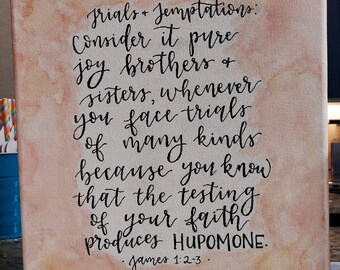 Trials + Temptations:
Consider it pure
joy brothers +
sisters, whenever
you face trials
of many kinds
because you know
that the testing
of your faith
produces HUPOMONE.
· James 1:2-3 ·